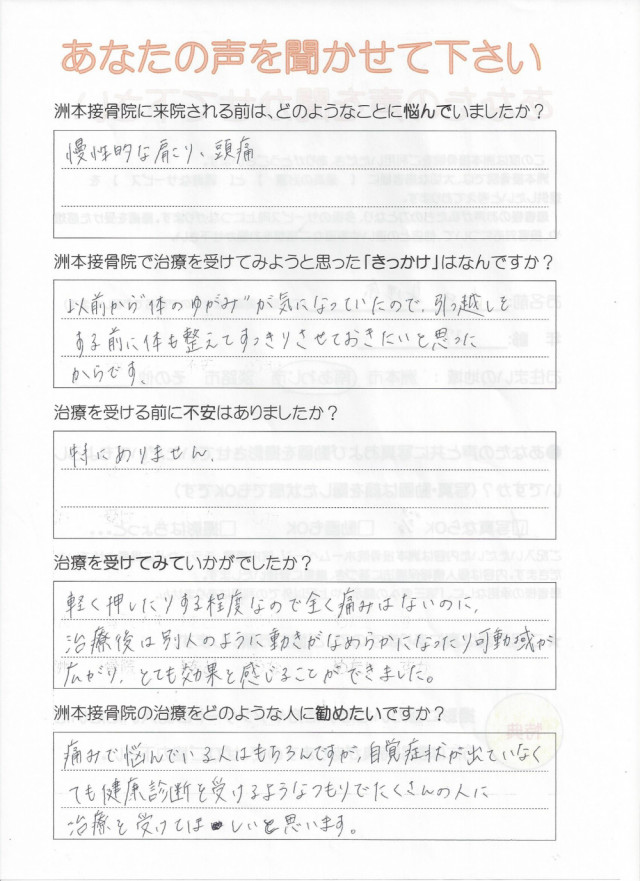 あなたの声を聞かせて下さい
洲本接骨院に来院される前は、どのようなことに悩んでいましたか？
慢性的な肩こり、頭痛
洲本接骨院で治療を受けてみようと思った「きっかけ」はなんですか？
以前から"体のゆがみ"が気になっていたので、引っ越しを
する前に体も整えてすっきりさせておきたいと思った
からです。
治療を受ける前に不安はありましたか？
特にありません。
治療を受けてみていかがでしたか？
軽く押したりする程度なので全く痛みはないのに、
治療後は別人のように動きがなめらかになったり可動域が
広がり、とても効果を感じることができました。
洲本接骨院の治療をどのような人に勧めたいですか？
痛みで悩んでいる人はもちろんですが、自覚症状が出ていなく
ても健康診断を受けるようなつもりでたくさんの人に
治療を受けてほしいと思います。